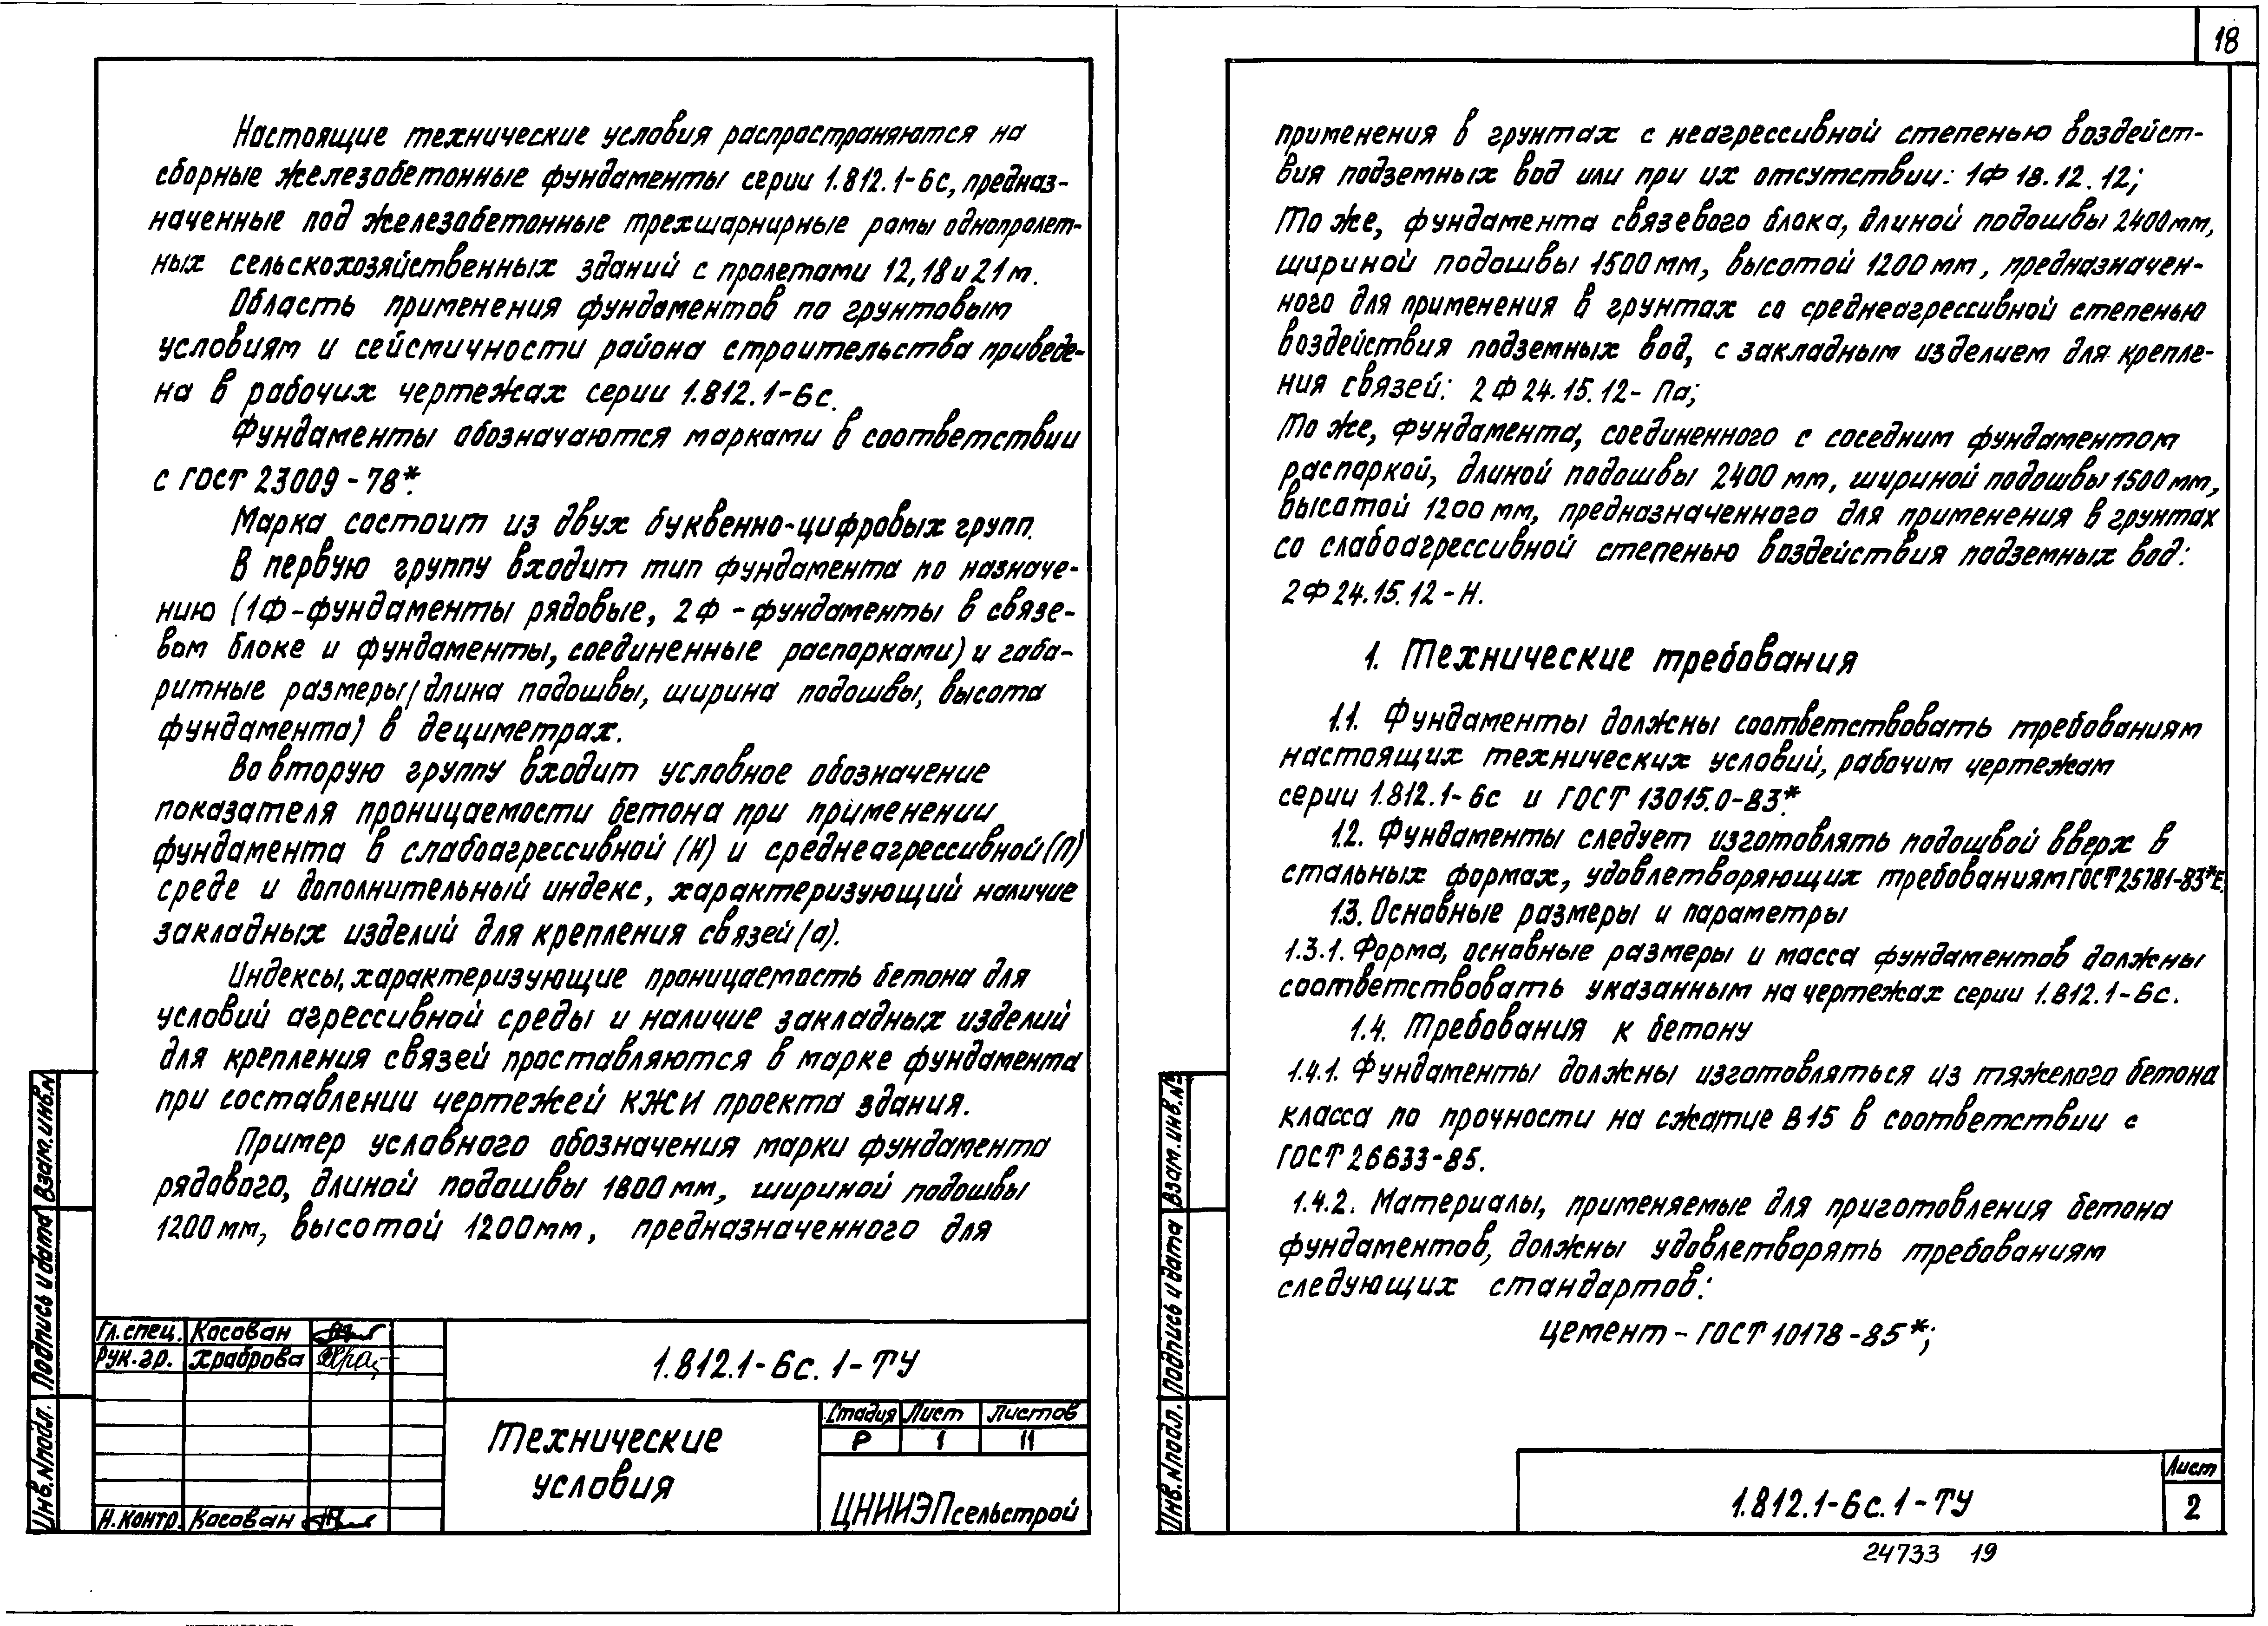 Настоящие технические условия распространяются на
сборные железобетонные фундаменты серии 1.812.1-6с, предназ-
наченные под железобетонные трехшарнирные рамы однопролет-
ных сельскохозяйственных зданий с пролетами 12, 18 и 21 м.
Область применения фундаментов по грунтовым
условиям и сейсмичности района строительства приведе-
на в рабочих чертежах серии 1.812.1-6с.
Фундаменты обозначаются марками в соответствии
с ГОСТ 23009-78*.
Марка состоит из двух буквенно-цифровых групп.
В первую группу входит тип фундамента по назначе-
нию (1Ф-фундаменты рядовые, 2Ф-фундаменты в связе-
вом блоке и фундаменты, соединенные распорками) и габа-
ритные размеры (длина подошвы, ширина подошвы, высота
фундамента) в дециметрах.
Во вторую группу входит условное обозначение
показателя проницаемости бетона при применении
фундамента в слабоагрессивной (Н) и среднеагрессивной (П)
среде и дополнительный индекс, характеризующий наличие
закладных изделий для крепления связей (а).
Индексы, характеризующие проницаемость бетона для
условий агрессивной среды и наличие закладных изделий
для крепления связей проставляются в марке фундамента
при составлении чертежей КЖИ проекта здания.
Пример условного обозначения марки фундамента
рядового, длиной подошвы 1800 мм, шириной подошвы
1200 мм, высотой 1200 мм, предназначенного для
Инв.N подл. Подпись и дата Взам.инв.N
Гл.спец. Косован
Рук.гр. Храброва
Н.контр. Косован
1.812.1-6с.1-ТУ
Технические
условия
Стадия Лист Листов
Р 1 11
ЦНИИЭПсельстрой
18
применения в грунтах с неагрессивной степенью воздейст-
вия подземных вод или при их отсутствии: 1Ф 18.12.12;
То же, фундамента связевого блока, длиной подошвы 2400 мм,
шириной подошвы 1500 мм, высотой 1200 мм, предназначен-
ного для применения в грунтах со среднеагрессивной степенью
воздействия подземных вод, с закладным изделием для крепле-
ния связей: 2Ф 24.15.12-Па;
То же, фундамента, соединенного с соседним фундаментом
распоркой, длиной подошвы 2400 мм, шириной подошвы 1500 мм,
высотой 1200 мм, предназначенного для применения в грунтах
со слабоагрессивной степенью воздействия подземных вод:
2Ф 24.15.12-Н.
1. Технические требования
1.1. Фундаменты должны соответствовать требованиям
настоящих технических условий, рабочим чертежам
серии 1.812.1-6с и ГОСТ 13015.0-83*.
1.2. Фундаменты следует изготовлять подошвой вверх в
стальных формах, удовлетворяющих требованиям ГОСТ 25781-83*Е.
1.3. Основные размеры и параметры
1.3.1. Форма, основные размеры и масса фундаментов должны
соответствовать указанным на чертежах серии 1.812.1-6с.
1.4. Требования к бетону
1.4.1. Фундаменты должны изготовляться из тяжелого бетона
класса по прочности на сжатие В15 в соответствии с
ГОСТ 26633-85.
1.4.2. Материалы, применяемые для приготовления бетона
фундаментов, должны удовлетворять требованиям
следующих стандартов:
цемент - ГОСТ 10178-85*;
Инв.N подл. Подпись и дата Взам.инв.N
1.812.1-6с.1-ТУ
Лист
2
24733 19